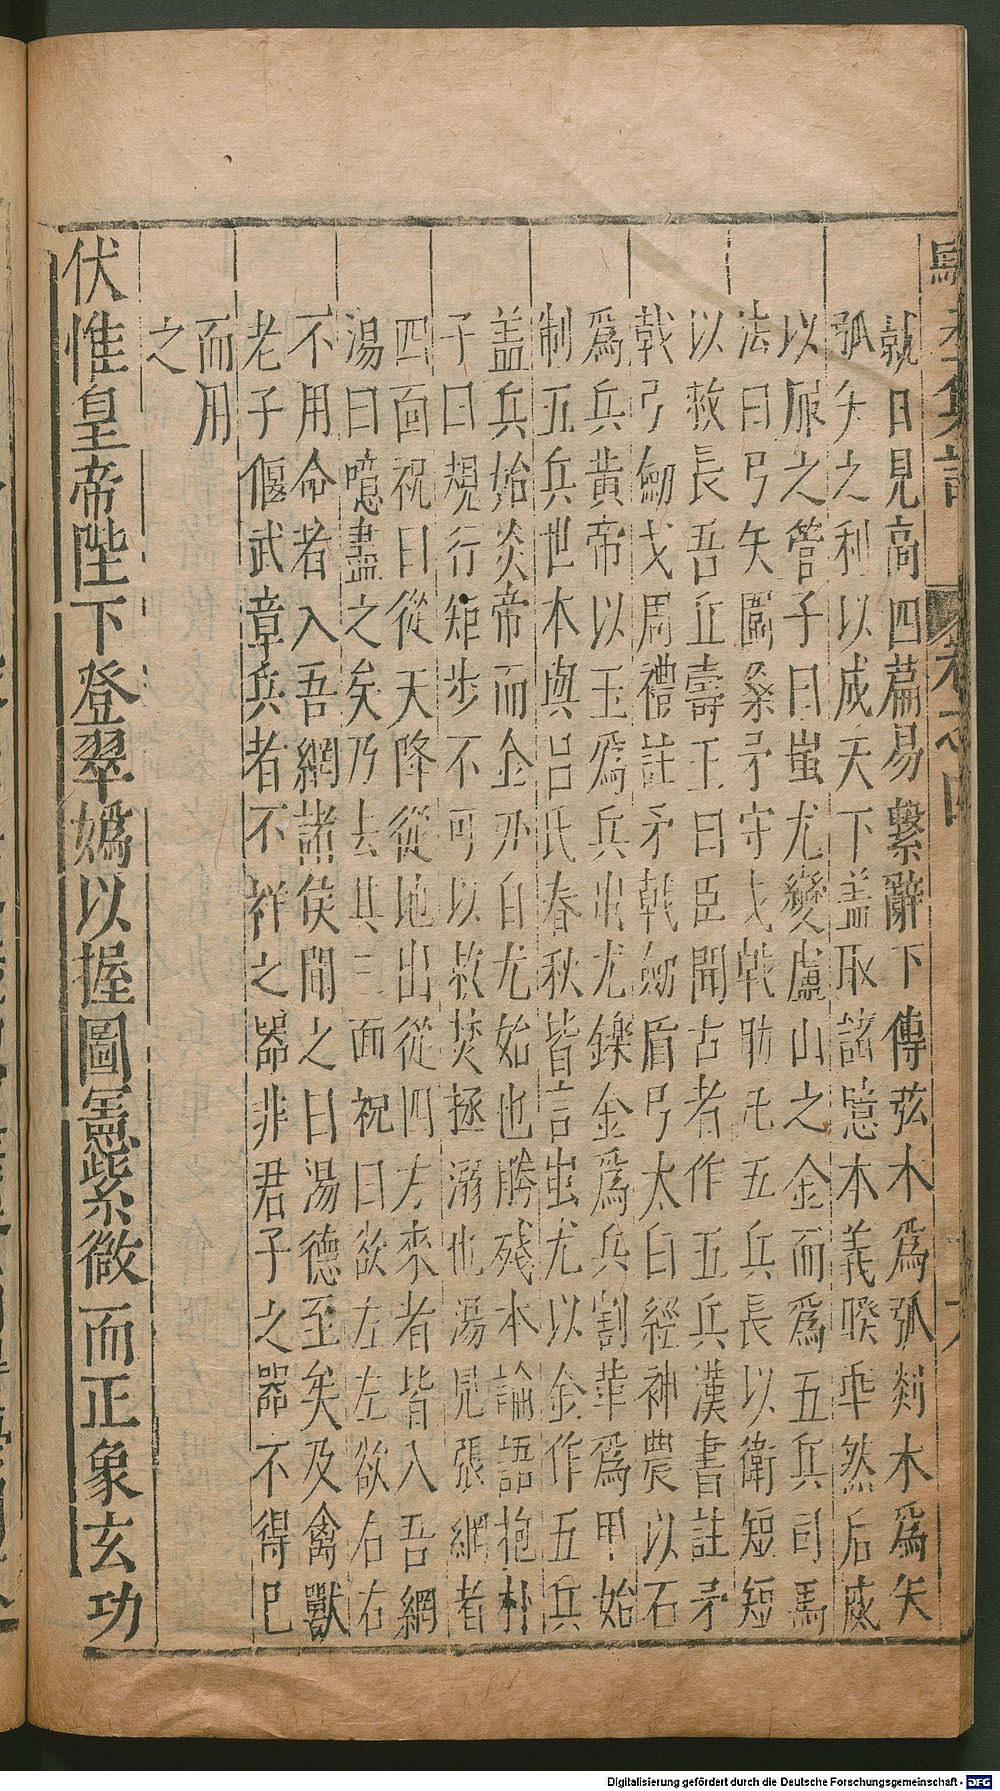 就日見高四篇易繫辭下傳弦木爲弧剡木爲矢
弧矢之利以威天下盖取諸睽本義睽乖然后威
以服之管子曰蚩尤變盧山之金而爲五兵司馬
法曰弓矢圍殳矛守戈戟助凡五兵長以衛短短
以救長吾丘壽王曰臣聞古者作五兵漢書註矛
戟弓劒戈周禮註矛戟劒盾弓太白經神農以石
爲兵黄帝以玉爲兵蚩尤鑠金爲兵割革爲甲始
制五兵世本與吕氏春秋皆言蚩尤以金作五兵
盖兵始炎帝而金刃自尤始也勝殘本論語抱朴
子曰規行矩步不可以救焚拯溺也湯見張網者
四面祝曰從天降從地出從四方來者皆入吾網
湯曰噫盡之矣乃去其三面祝曰欲左左欲右右
不用命者入吾網諸侯聞之曰湯德至矣及禽獸
老子偃武章兵者不祥之器非君子之器不得已
而用
之
伏惟皇帝陛下登翠嬀以握圖憲紫微而正象玄功
Digitalisierung gefördert durch die Deutsche Forschungsgemeinschaft - DFG